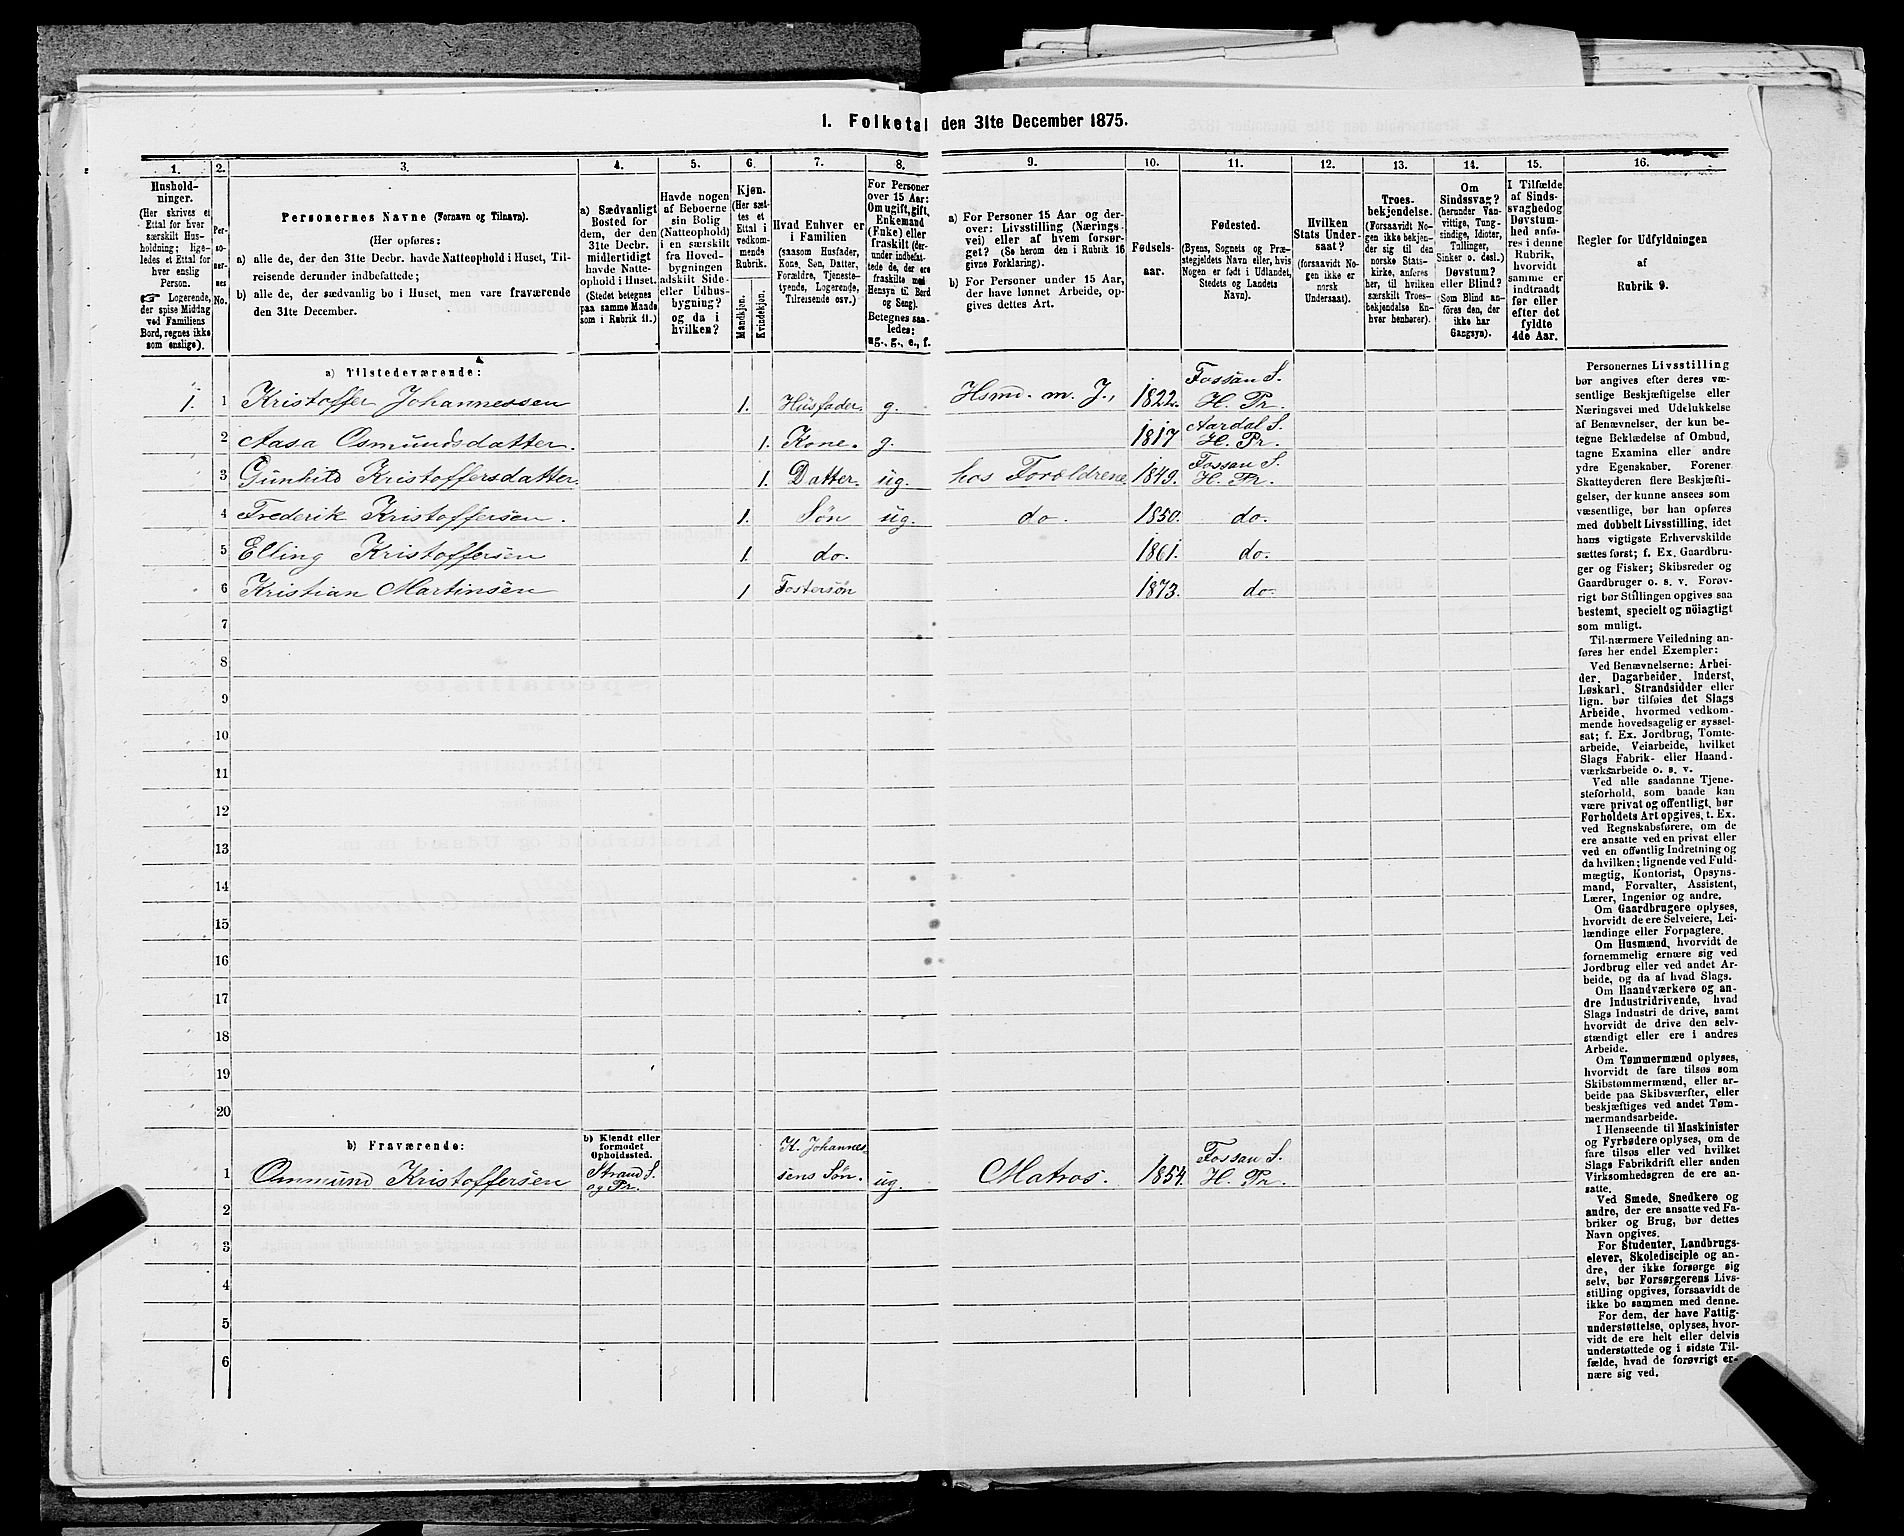 1. Folketal den 31te December 1875.
1. 2. 3. 4. 5. 6. 7. 8. 9. 10. 11. 12. 13. 14. 15. 16.
Hushold-
ninger.
(Her skrives et
Ettal for hver
særskilt Hus-
holdning; lige-
ledes et Ettal for
hver enslig
Person.
☞ Logerende,
der spise Middag
ved Familiens
Bord, regnes ikke
som enslige).
Per-
so-
ner-
nes
No.
Personernes Navne (Fornavn og Tilnavn).
(Her opføres:
a) alle de, der den 31te Decbr. havde Natteophold i Huset, Til-
reisende derunder indbefattede;
b) alle de, der sædvanlig bo i Huset, men vare fraværende
den 31te December.
a) Sædvanligt
Bosted for
dem, der den
31te Decbr.
midlertidigt
havde Natte-
ophold i Huset.
(Stedet betegnes
paa samme Maade
som i Rubrik 11.)
Havde nogen
af Beboerne
sin Bolig
(Natteophold)
i en særskilt
fra Hoved-
bygningen
adskilt Side-
eller Udhus-
bygning?
og da i
hvilken?
Kjøn.
(Her sæt-
tes et
Ettal i
vedkom-
mende
Rubrik.
Mandkjøn.
Kvindekjøn.
Hvad Enhver er
i Familien
(saasom Husfader,
Kone, Søn, Datter,
Forældre, Tjeneste-
tyende, Logerende,
Tilreisende osv.)
For Personer
over 15 Aar:
Om ugift, gift,
Enkemand
(Enke) eller
fraskilt (der-
under indbefat-
tede de, der ere
fraskilte med
Hensyn til Bord
og Seng).
Betegnes saa-
ledes:
ug., g., e., f.
a) For Personer 15 Aar og der-
over: Livsstilling (Nærings-
vei) eller af hvem forsør-
get? (Se herom den i Rubrik 16
givne Forklaring).
b) For Personer under 15 Aar,
der have lønnet Arbeide, op-
gives dettes Art.
Fødsels-
aar.
Fødested.
(Byens, Sognets og Præ-
stegjeldets Navn eller, hvis
Nogen er født i Udlandet,
Stedets og Landets
Navn).
Hvilken
Stats Under-
saat?
(forsaavidt No-
gen ikke er
norsk
Undersaat).
Troes-
bekjendelse.
(Forsaavidt No-
gen ikke bekjen-
der sig til den
norske Stats-
kirke, anføres
her, til hvilken
særskilt Troes-
bekjendelse En-
hver henhører).
Om
Sindssvag?
(herunder Van-
vittige, Tung-
sindige, Idioter,
Tullinger,
Sinker o. desl.)
Døvstum?
eller Blind?
(Som Blind an-
føres den, der
ikke har
Gangsyn).
I Tilfælde
af Sinds-
svaghed og
Døvstum-
hed anfø-
res i denne
Rubrik,
hvorvidt
samme er
indtraadt
før eller
efter det
fyldte
4de Aar.
Regler for Udfyldningen
af
Rubrik 9.
a) Tilstedeværende:
1. 1 Kristoffer Johannessen 1. Husfader. g. Hsmd. m. J., 1822. Fossan S. H. Pr.
2 Aasa Osmundsdatter. 1. Kone. g. 1817 Aardal S. H. Pr.
3 Gunhild Kristoffersdatter. 1. Datter. ug. hos Forældrene. 1849. Fossan S. H. Pr.
4 Frederik Kristoffersen. 1. Søn ug. do. 1850. do.
5 Elling Kristoffersen 1. do. 1861. do.
6 Kristian Martinsen 1 Fostersøn 1873. do.
7
8
9
10
11
12
13
14
15
16
17
18
19
20
b) Fraværende:
b) Kjendt eller
formodet
Opholdssted.
1 Ommund Kristoffersen Strand S. og Pr. K. Johannes-sens Søn. ug. Matros. 1854. Fossan S. H. Pr.
2
3
4
5
6
Personernes Livsstilling
bør angives efter deres væ-
sentlige Beskjæftigelse eller
Næringsvei med Udelukkelse
af Benævnelser, der kun be-
tegne Beklædelse af Ombud,
tagne Examina eller andre
ydre Egenskaber. Forener
Skatteyderen flere Beskjæfti-
gelser, der kunne ansees som
væsentlige, bør han opføres
med dobbelt Livsstilling, idet
hans vigtigste Erhvervskilde
sættes først; f. Ex. Gaardbru-
ger og Fisker; Skibsreder og
Gaardbruger o. s. v. Forøv-
rigt bør Stillingen opgives saa
bestemt, specielt og nöiagtigt
som muligt.
Til nærmere Veiledning an-
føres her endel Exempler:
Ved Benævnelserne: Arbei-
der, Dagarbeider, Inderst,
Løskarl, Strandsidder eller
lign. bør tilføies det Slags
Arbeide, hvormed vedkom-
mende hovedsagelig er syssel-
sat; f. Ex. Jordbrug, Tomte-
arbeide, Veiarbeide, hvilket
Slags Fabrik- eller Haand-
værksarbeide o. s. v.
Ved alle saadanne Tjene-
steforhold, som baade kan
være privat og offentligt, bør
Forholdets Art opgives, t. Ex.
ved Regnskabsførere, om de
ere ansatte ved en privat eller
ved en offentlig Indretning og
da hvilken; lignende ved Fuld-
mægtig, Kontorist, Opsyns-
mand, Forvalter, Assistent,
Lærer, Ingeniør og andre.
Om Gaardbrugere oplyses,
hvorvidt de ere Selveiere, Lei-
lændinge eller Forpagtere.
Om Husmænd, hvorvidt de
fornemmelig ernære sig ved
Jordbrug eller ved andet Ar-
beide, og da af hvad Slags.
Om Haandværkere og an-
dre Industridrivende, hvad
Slags Industri de drive, samt
hvorvidt de drive den selv-
stændigt eller ere i andres
Arbeide.
Om Tømmermænd oplyses,
hvorvidt de fare tilsøs som
Skibstømmermænd, eller ar-
beide paa Skibsværfter, eller
beskjæftiges ved andet Tøm-
mermandsarbeide.
I Henseende til Maskinister
og Fyrbødere oplyses, om de
fare tilsøs eller ved hvilket
Slags Fabrikdrift eller anden
Virksomhedsgren de ere an-
satte.
Ved Smede, Snedkere og
andre, der ere ansatte ved Fa-
briker og Brug, bør dettes
Navn opgives.
For Studenter, Landbrugs-
elever, Skoledisciple og an-
dre, der ikke forsørge sig
selv, bør Forsørgerens Livs-
stilling opgives, forsaavidt de
ikke bo sammen med denne.
For dem, der have Fattig-
understøttelse, oplyses, hvor-
vidt de ere helt eller delvis
understøttede og i sidste Til-
fælde, hvad de forøvrigt er-
nære sig ved.